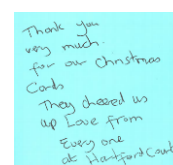 Thank you
very much.
for our Christmas
Cards
They cheered us
up Love from
Every one
at Hartford Court